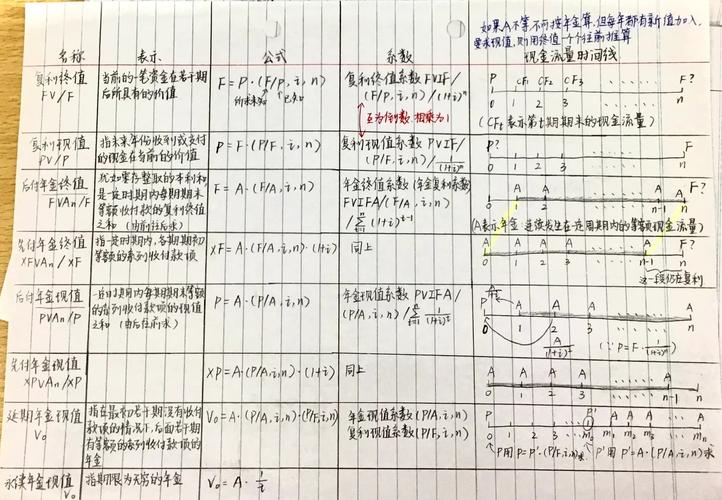 如果A不等,不可按年金算,但每年都有新值加入,
要求现值,则用终值一个个往前推算
名称 表示 公式 系数 现金流量时间线
复利终值
FV/F
当前的一笔资金在若干期
后所具有的价值
F=P·(F/P,i,n)
所求未知 已知
复利终值系数FVIF/
(F/P,i,n)/(1+i)^n
互为倒数,相乘为1
P CF₁ CF₂ CF₃ F?
0 1 2 3 n
(CFt表示第t期期末的现金流量)
复利现值
PV/P
指未来年份收到或支付
的现金在当前的价值
P=F·(P/F,i,n)
复利现值系数PVIF/
(P/F,i,n)/1/(1+i)^n
P? F
0 1 2 3 n
后付年金终值
FVAn/F
犹如零存整取的本利和
是一定时期内每期期末
等额收付款的复利终值
之和(由前往后求)
F=A·(F/A,i,n)
年金终值系数(年金复利系数)
FVIFA/(F/A,i,n)
/∑(1+i)^(t-1)
A A A A F?
0 1 2 3 n-1 n
(A表示年金:连续发生在一定周期内的等额现金流量)
先付年金终值
XFVAn/XF
指一定时期内,各期期初
等额的系列收付款项
XF=A·(F/A,i,n)·(1+i)
同上
A A A A A F?
0 1 2 3 n-1 n
这一段仍在复利
后付年金现值
PVAn/PP
一定时期内每期期末等额
的系列收付款项的现值
之和(由后往前求)
P=A·(P/A,i,n)
年金现值系数PVIFA/
(P/A,i,n)/∑1/(1+i)^t
P A A A A A
0 1 2 3 n
A/(1+i)² (∵P=F·1/(1+i)^n)
先付年金现值
XPVAn/XP
XP=A·(P/A,i,n)·(1+i)
同上
A A A A A
0 1 2 3 n-1 n
延期年金现值
V₀
指在最初若干期没有收付
款项的情况下,后面若干期
有等额的系列收付款项的
年金
V₀=A·(P/A,i,n)·(P/F,i,n)
年金现值系数(P/A,i,n)
复利现值系数(P/F,i,n)
P P' A A A A
0 1 2 3
P用P=P'·(P/F,i,n)求 P'用P'=A·(P/A,i,n)求
永续年金现值
V₀
指期限为无穷的年金
V₀=A·1/i